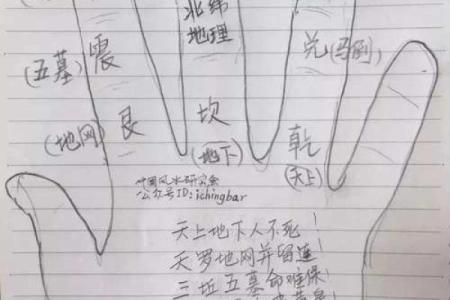 北纬
地理
震
(五墓)
兑
(马刺)
艮
(地网)
坎
(地下)
乾
(天上)
中国风水研究会
公众号ID:ichingbar
天上地下人不死!
天罗地网并留连
三丘五墓命难保!